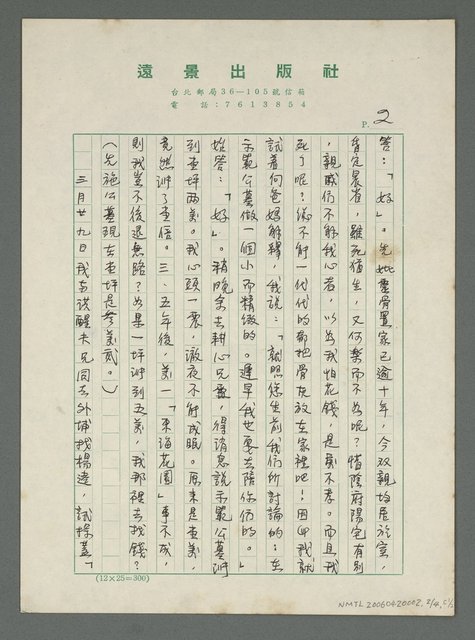 遠景出版社
台北郵局36—105號信箱
電話:7613854
P. 2
答:「好」。先妣靈骨置家已逾十年,今双親均居於室,
晨省,雖死猶生,又何樂而不為呢?惜陰府陽宅有別
,親戚們不解我心者,以為我怕花錢,是莫不孝。而且我
死了呢?總不能一代代的都把骨灰放在家裡吧!因此我就
試着向爸媽解釋,我說:「就照您生前我們所討論的:在
示範公墓做一個小而精緻的。遲早我也要去陪你們的。」
答:「好」。稍晚余去耕心兄處,得消息說示範公墓漲
到壹坪兩萬。我心頭一震,徹夜不能成眠。原來是壹萬,
竟然漲了壹倍。三、五年後,萬一「東海花園」事不成,
則我豈不後退無路?如果一坪漲到五萬,我那裡去找錢?
(先施公墓現在壹坪是參萬貳。)
三月廿九日我去洪醒夫兄同去外埔找楊逵,試探墓「
(12×25=300)
NMTL20060420002, 2/4,